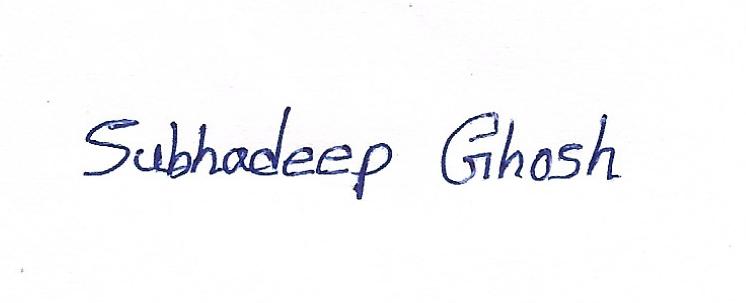 Subhadeep Ghosh